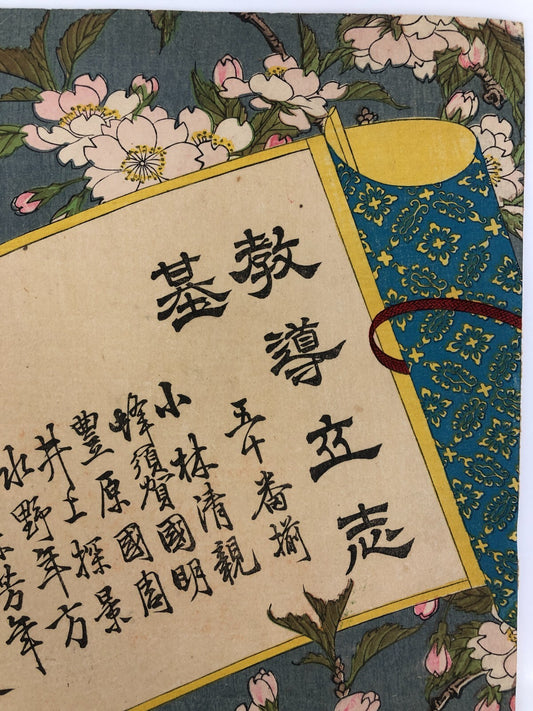 教導立志
基
五十番揃
小林清親
蜂須賀國明
豊原國周
井上探景
水野年方
芳年